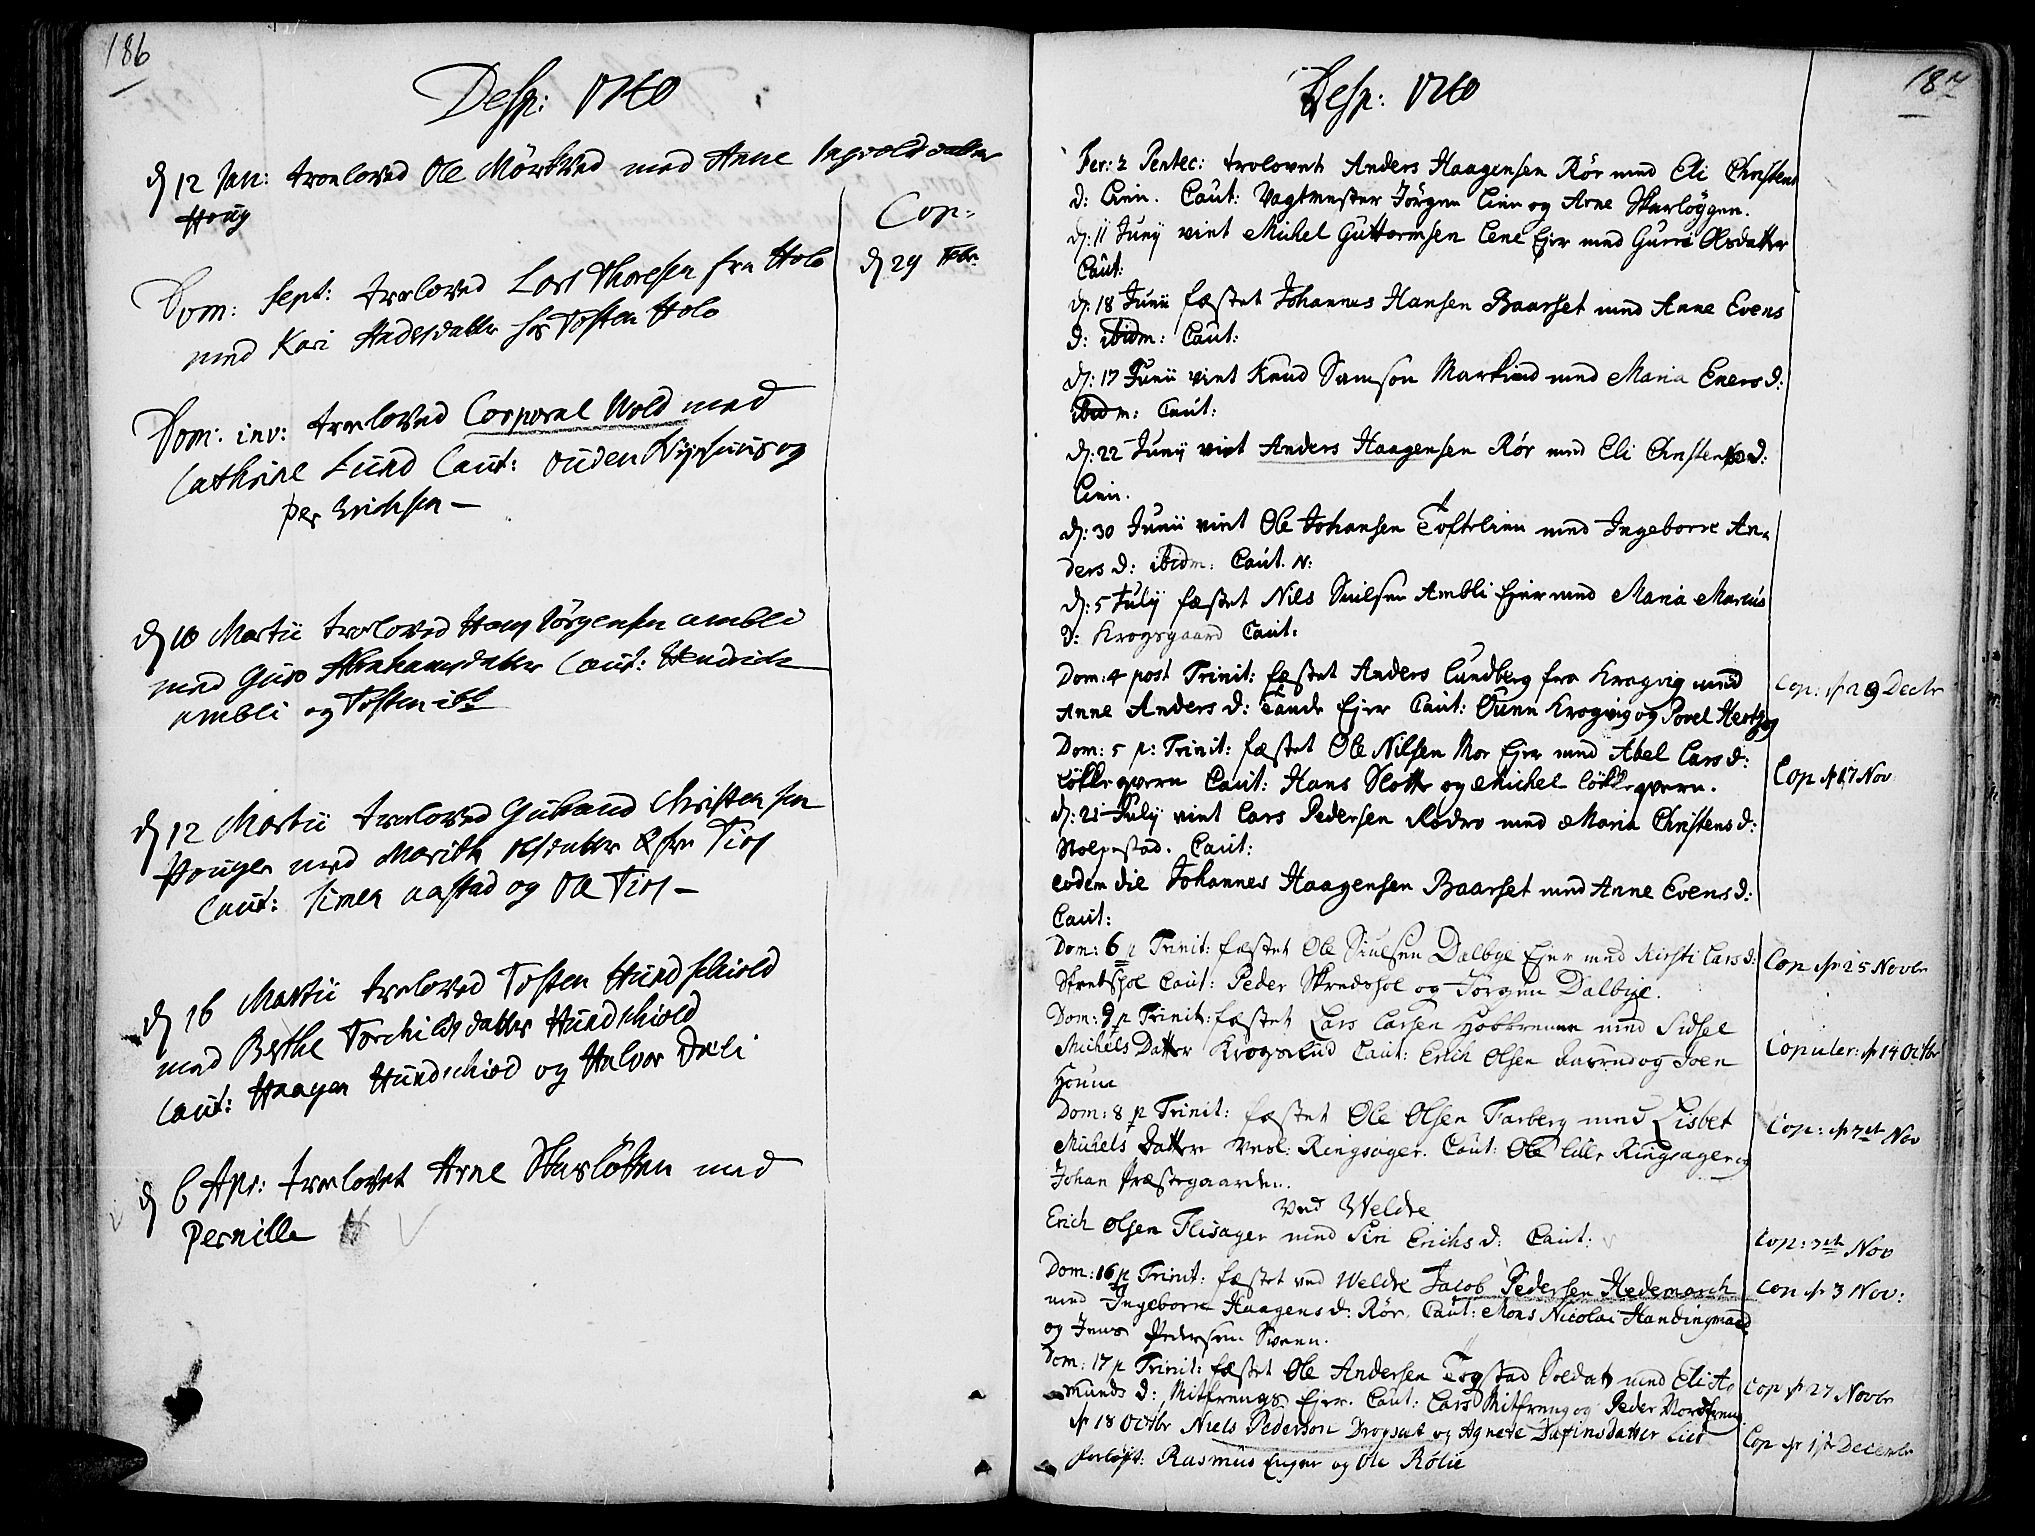 186
Desp: 1740
d 12 Jan: troeloved Ole Mörkved med Anne Ingvoldsdatter
Houg
Cop:
Dom: sept: troeloved Lars Thoresen fra Holo
d 29 Febr
med Kari Andersdatter hos Tosten Holo
Dom: inv: troeloved Corporal Wold med
Cathrine Lund Caut: ouden og
per Erichsen —
d 10 Martii troeloved Hans Jörgensen ambli
med Guro Abrahamsdatter Caut: Hendrich
ambli og Tosten ibd
d 12 Martii troeloved Gulbrand Christensen
med Marith olsdatter fra Tios
Caut: Simen aastad og Ole Tios —
d 16 Martii troeloved Tosten Hundschiold
med Berthe Torchildsdatter Hundschiold
Caut: Haagen Hundschiold og Halvor Dæli
d 6 Apr: troelovet Arne Skarlöken med
Pernille
187
Desp: 1740
Fer: 2 Pentec: trolovet Anders Haagensen Rör med Eli Christens
d: Lien. Caut: Vagtmester Jörgen Lien og Arne Skarlöggen.
d: 11 Junij viet Michel Guttormsen Lene Ejer med Gurri Olsdatter
Caut:
d: 18 Junii fæstet Johannes Hansen Baarset med Anne Evens
d: ibidm: Caut:
d: 17 Junii viet Knud Samson Markind med Maria Eners d:
ibidm: Caut:
d: 22 Junij viet Anders Haagensen Rör med Eli Christens d:
Lien.
d: 30 Junii viet Ole Johansen Toftelien med Ingeborre An-
ders d: ibidm: Caut. N:
d: 5 Julij fæstet Nils Siulsen Ambli Ejer med Maria Marcus
d: Krogsgaard Caut:
Dom: 4 post Trinit: fæstet Anders Lundberg fra Kragvig med
Cop: d 28 Decbr
Anne Anders d: Tande Ejer Caut: Gunn Krogvig og Povel Hertzog
Dom: 5 p: Trinit: fæstet Ole Nilsen Mor Ejer med Abel Lars d:
Cop d 17 Nov:
Lökkeqvern Caut: Hans Slotte og Michel Lökkeqvern.
d: 21 Julij viet Lars Pedersen Rodro med Maria Christens d:
Stolpestad. Caut:
eodem die Johannes Haagensen Baarset med Anne Evens d:
Caut:
Dom: 6 p Trinit: fæstet Ole Siulsen Dalbye Ejer med Kirsti Lars d:
Cop d 25 Novbr
Skredshol Caut: Peder Skredshol og Jörgen Dalbye.
Dom: 9 p Trinit: fæstet Lars Larsen med Sidsel
Michels Datter Krogslud Caut: Erich Olsen og Joen
Copuler: d 14 Octbr
Houm
Dom: 8 p Trinit: fæstet Ole Olsen Farberg med Lisbet
Cop: d 7de Nov
Michels Datter Vesl: Ringsager. Caut: Ole lille Ringsager og
Johan Præstegaarden.
ved Weldre
Erich Olsen Flisager med Siri Erichs d: Caut:
Cop: 3de Nov
Dom: 16 p Trinit: fæstet ved Weldre Jacob Pedersen Hedemarch
Cop d 3 Nov:
med Ingeborre Haagens d: Rör. Caut: Mons Nicolai Handingmand
og Jens Pedersen Sveen.
Dom: 17 p Trinit: fæstet Ole Andersen Togstad Soldat med Eli As
Cop d 27 Novbr
munds d: Mitfrengs Ejer. Caut: Lars Mitfreng og Peder Nordfreng
d 18 Octbr Niels Pederson Drogset og Agnete Dafinsdatter Lier
Cop d 1ste Decembr
forlöft: Rasmus Enger og Ole Rölie